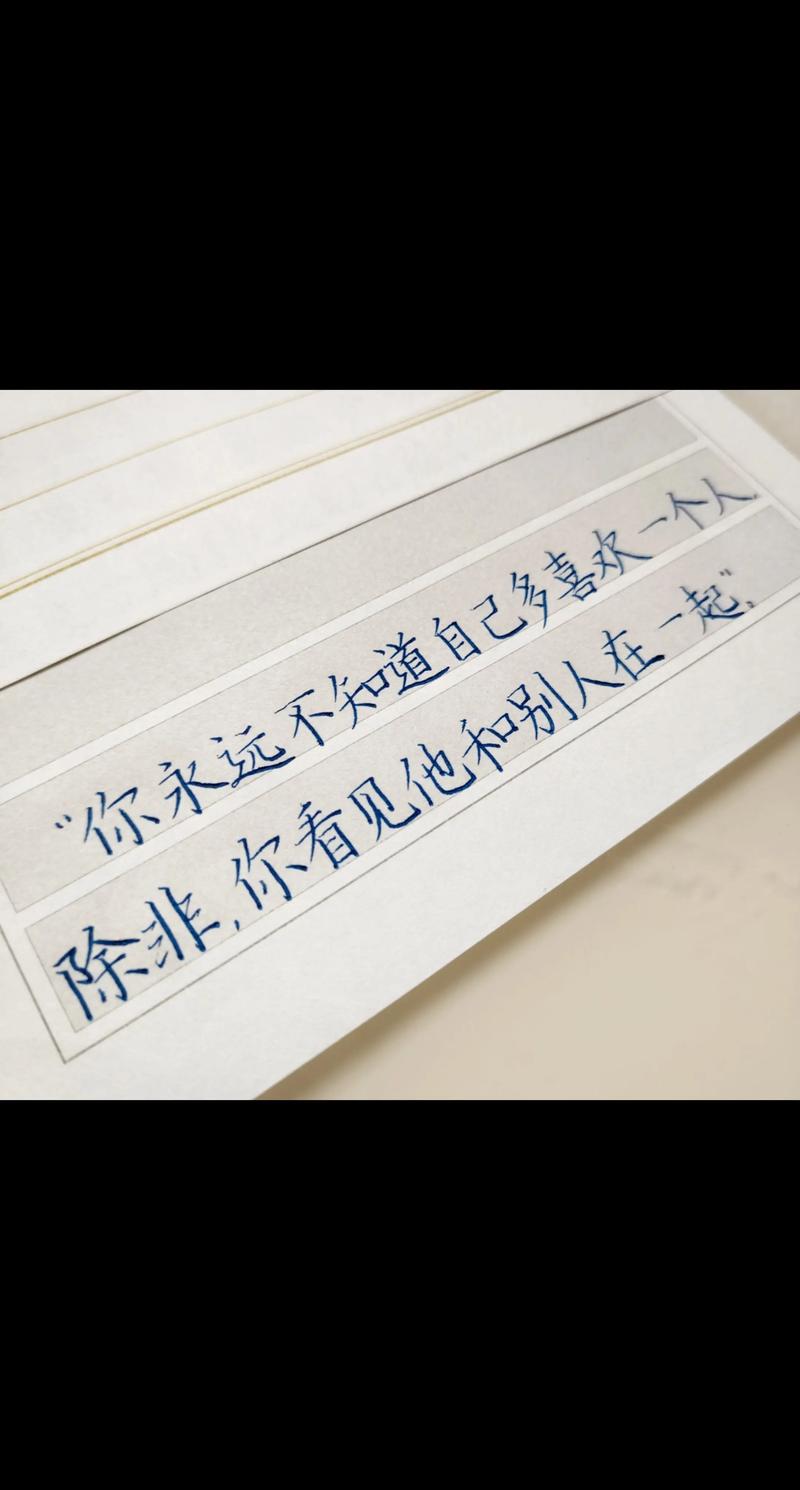 “你永远不知道自己多喜欢一个人.
除非,你看见他和别人在一起”.